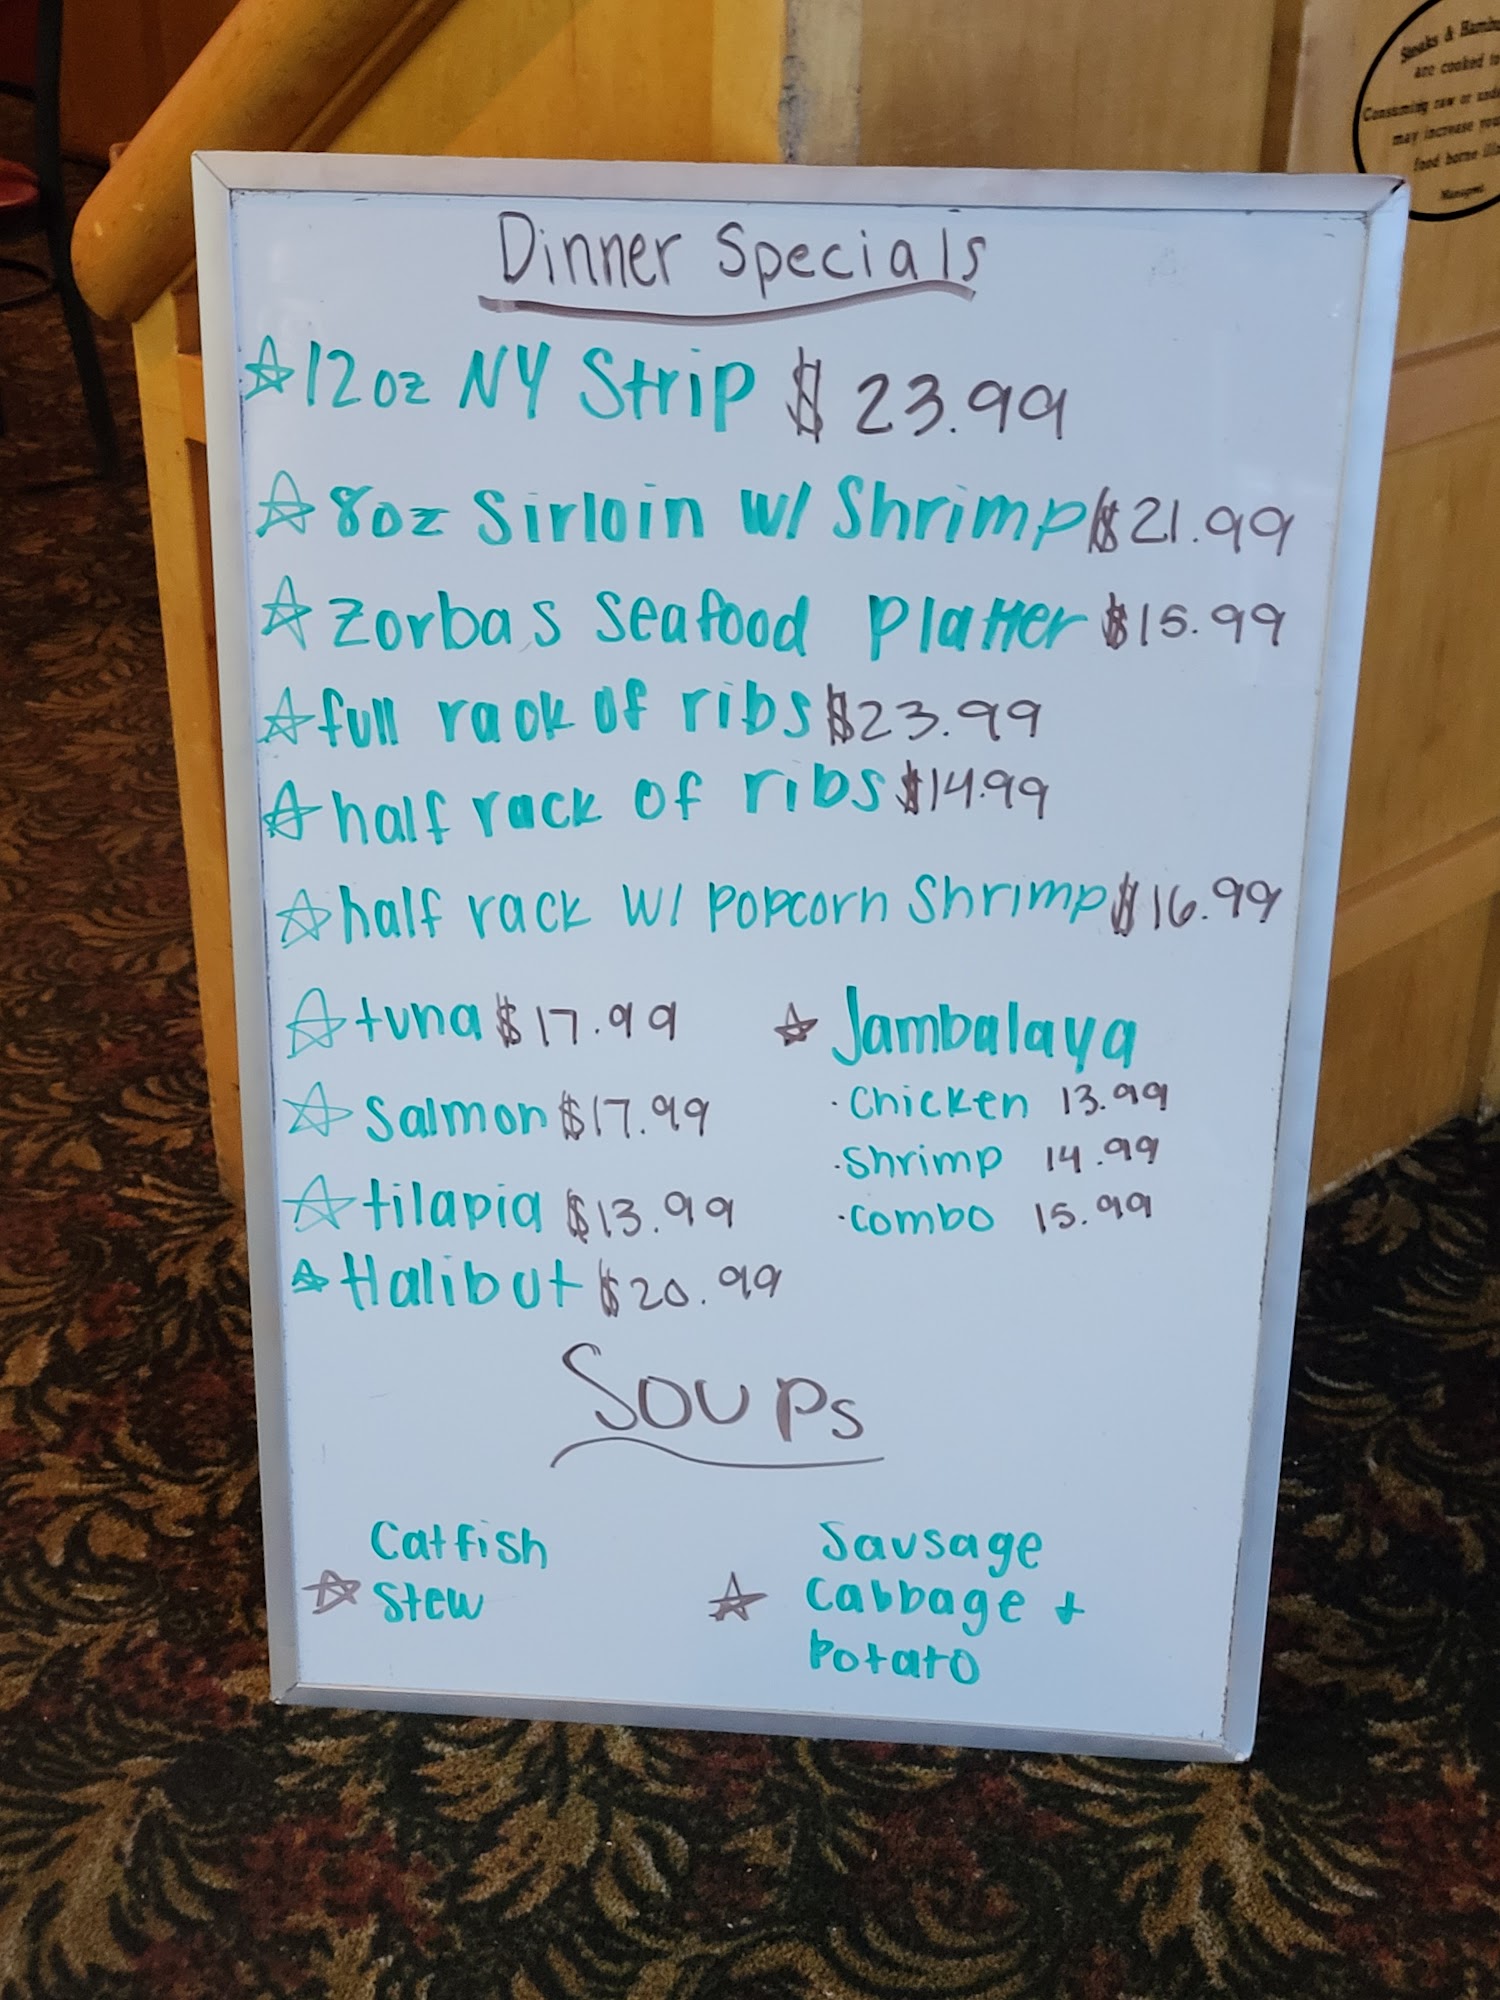 Dinner Specials
12oz NY Strip $ 23.99
8oz Sirloin w/ Shrimp $21.99
Zorbas Seafood Platter $15.99
full rack of ribs $23.99
half rack of ribs $14.99
half rack w/ Popcorn Shrimp $16.99
tuna $17.99
Salmon $17.99
tilapia $13.99
Halibut $20.99
Jambalaya
·Chicken 13.99
·Shrimp 14.99
·Combo 15.99
Soups
Catfish
Stew
Sausage
Cabbage +
Potato
Steaks &
are cooked
Consuming raw or
may increase
food borne